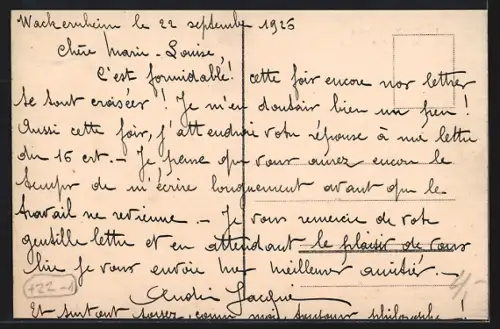 Wackernheim le 22 septembre 1925
Chère Marie-Louise,
C'est formidable! cette fois encore nos lettres
se sont croisées!! Je m'en doutais bien un peu!
Aussi cette fois, j'attendrai votre réponse à ma lettre
du 16 crt. - Je pense que vous aurez encore le
temps de m'écrire longuement avant que le
travail ne revienne. - Je vous remercie de votre
gentille lettre et en attendant le plaisir de vous
lire je vous envoie mes meilleures amitiés. -
+22-1
Et surtout soyez, comme moi, toujours philosophe!